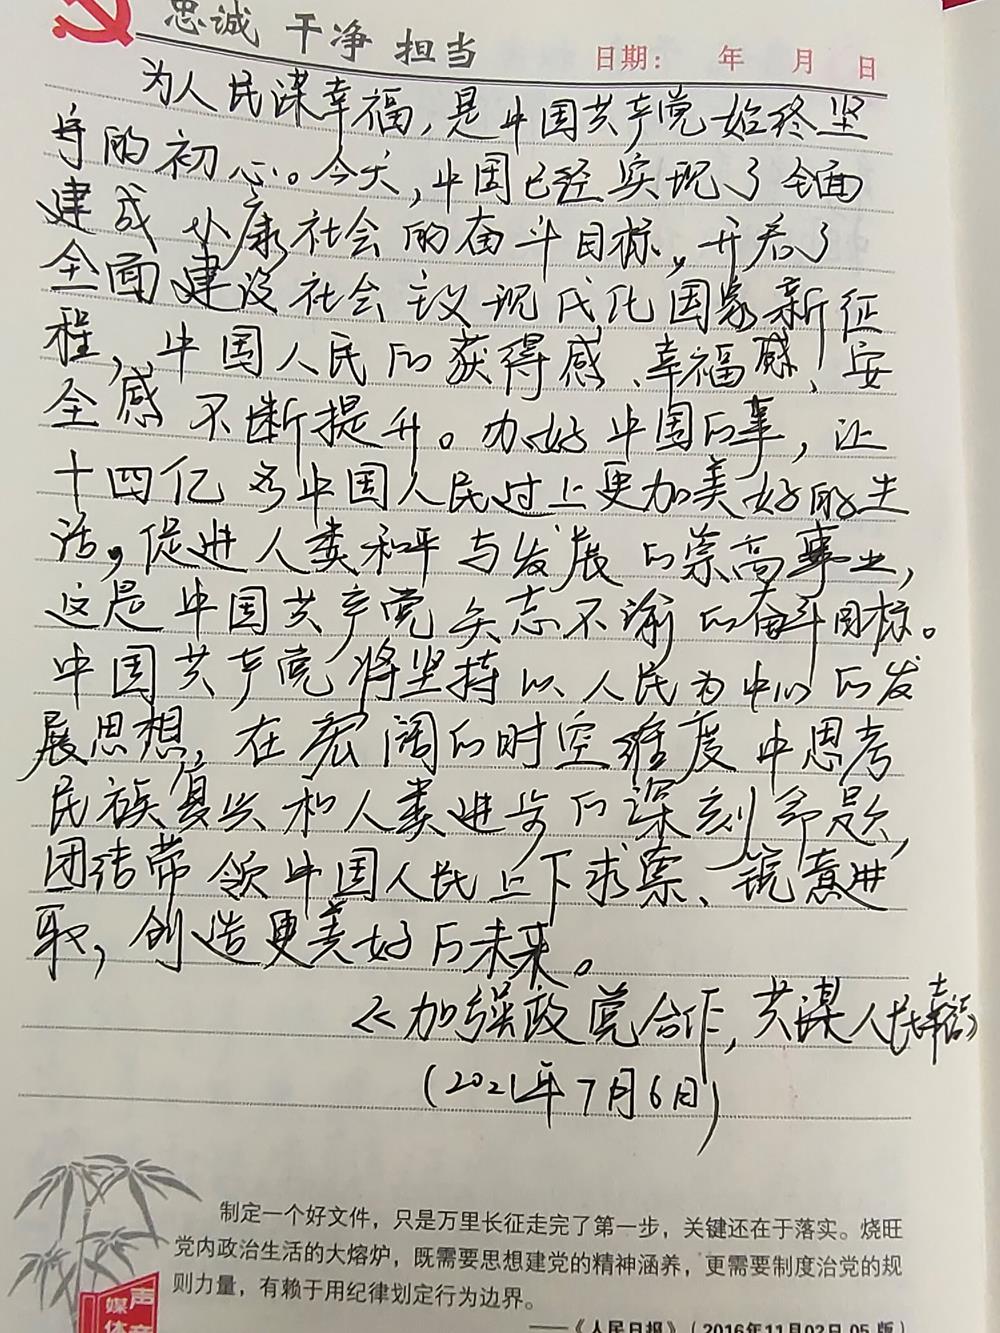 忠诚 干净 担当
日期： 年 月 日
为人民谋幸福，是中国共产党始终坚
守的初心。今天，中国已经实现了全面
建成小康社会的奋斗目标，开启了
全面建设社会主义现代化国家新征
程，中国人民的获得感、幸福感、安
全感不断提升。办好中国的事，让
十四亿多中国人民过上更加美好的生
活，促进人类和平与发展的崇高事业，
这是中国共产党矢志不渝的奋斗目标。
中国共产党将坚持以人民为中心的发
展思想，在宏阔的时空维度中思考
民族复兴和人类进步的深刻命题，
团结带领中国人民上下求索、锐意进
取，创造更美好的未来。
《加强政党合作，共谋人民幸福》
（2021年7月6日）
制定一个好文件，只是万里长征走完了第一步，关键还在于落实。烧旺
党内政治生活的大熔炉，既需要思想建党的精神涵养，更需要制度治党的规
则力量，有赖于用纪律划定行为边界。
——《人民日报》（2016年11月02日 05 版）
媒体
声音